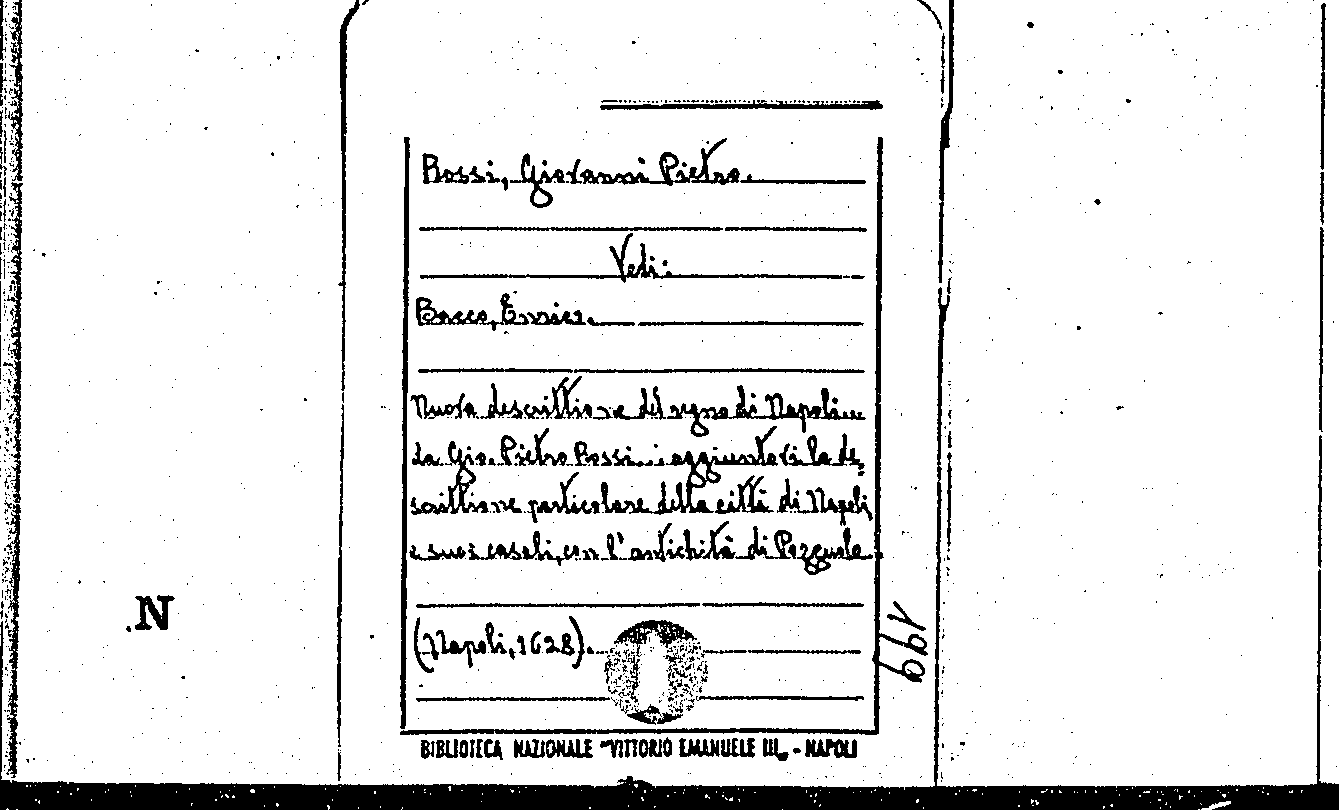 Rossi, Giovanni Pietro.
Vedi:
Bacco, Enrico.
Nuova descrittione del regno di Napoli...
da Gio. Pietro Rossi... aggiuntovi la de=
scrittione particolare della città di Napoli
e suoi casali, con l'antichità di Pozzuolo.
(Napoli, 1628).
199
N
BIBLIOTECA NAZIONALE "VITTORIO EMANUELE III„ - NAPOLI